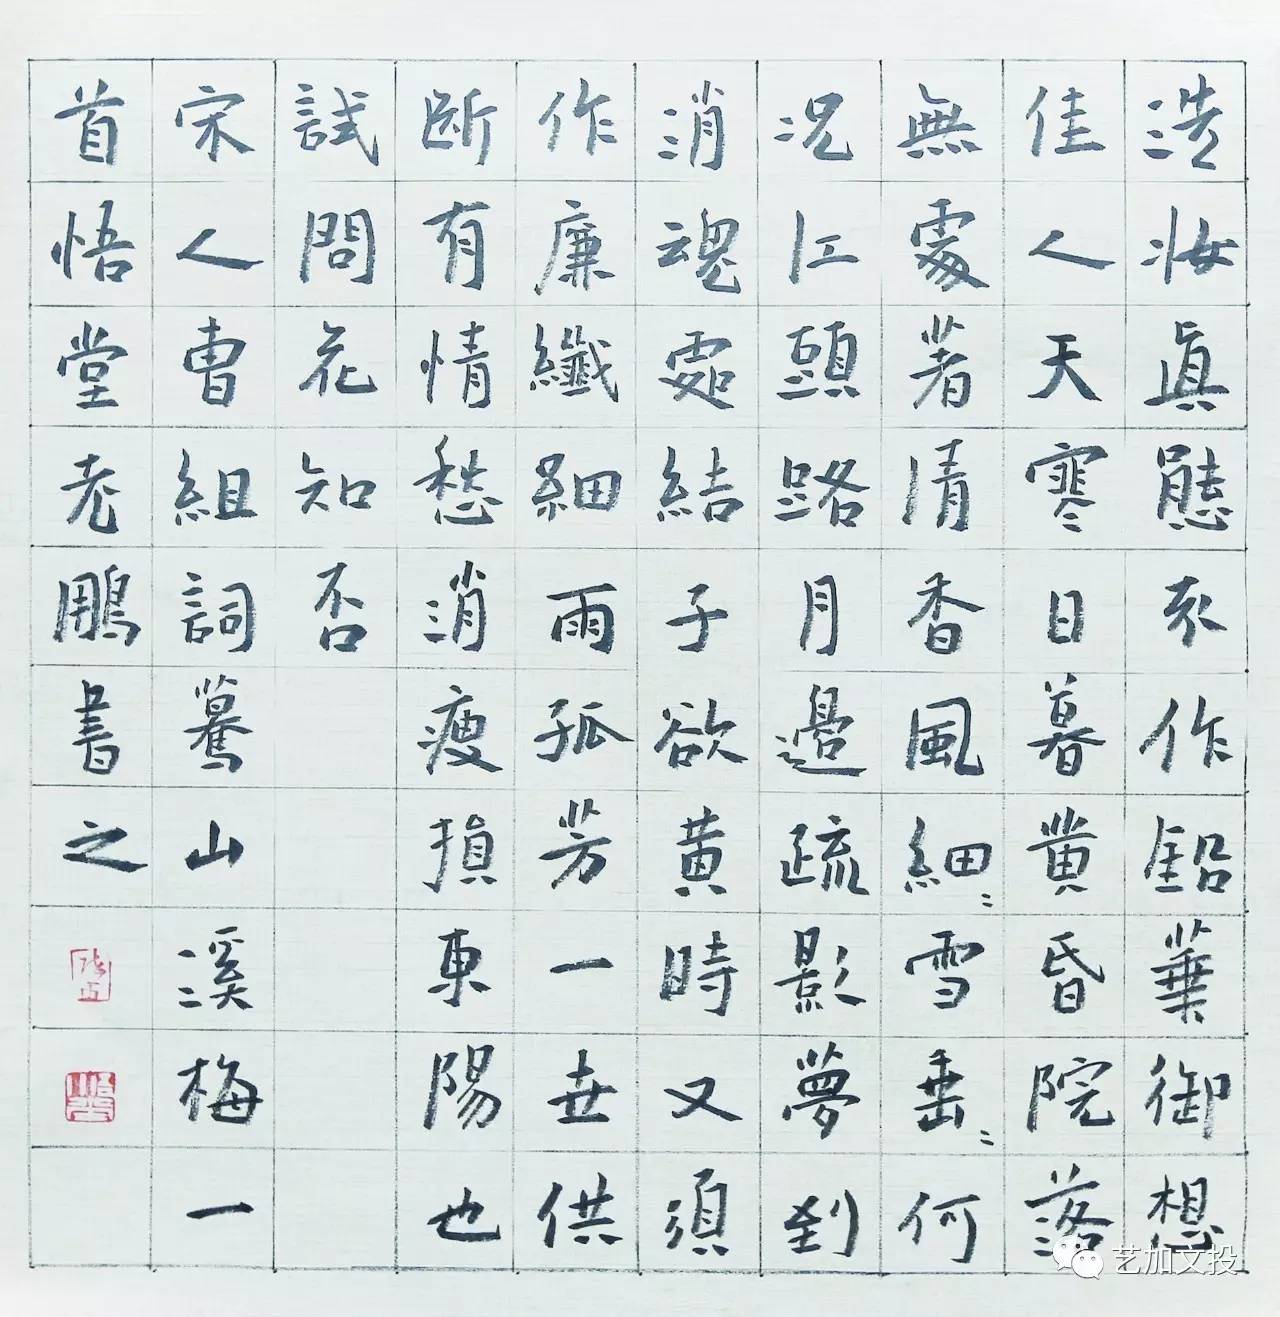 洗妝眞態不作鉛華御想
佳人天寒日暮黄昏院落
無處著清香風細〻雪垂〻何
况江頭路月邊疏影夢到
消魂處結子欲黄時又須
作廉纖細雨孤芳一世供
断有情愁消瘦損東陽也
試問花知否
宋人曹組詞驀山溪梅一
首悟堂老鵬書之
艺加文投